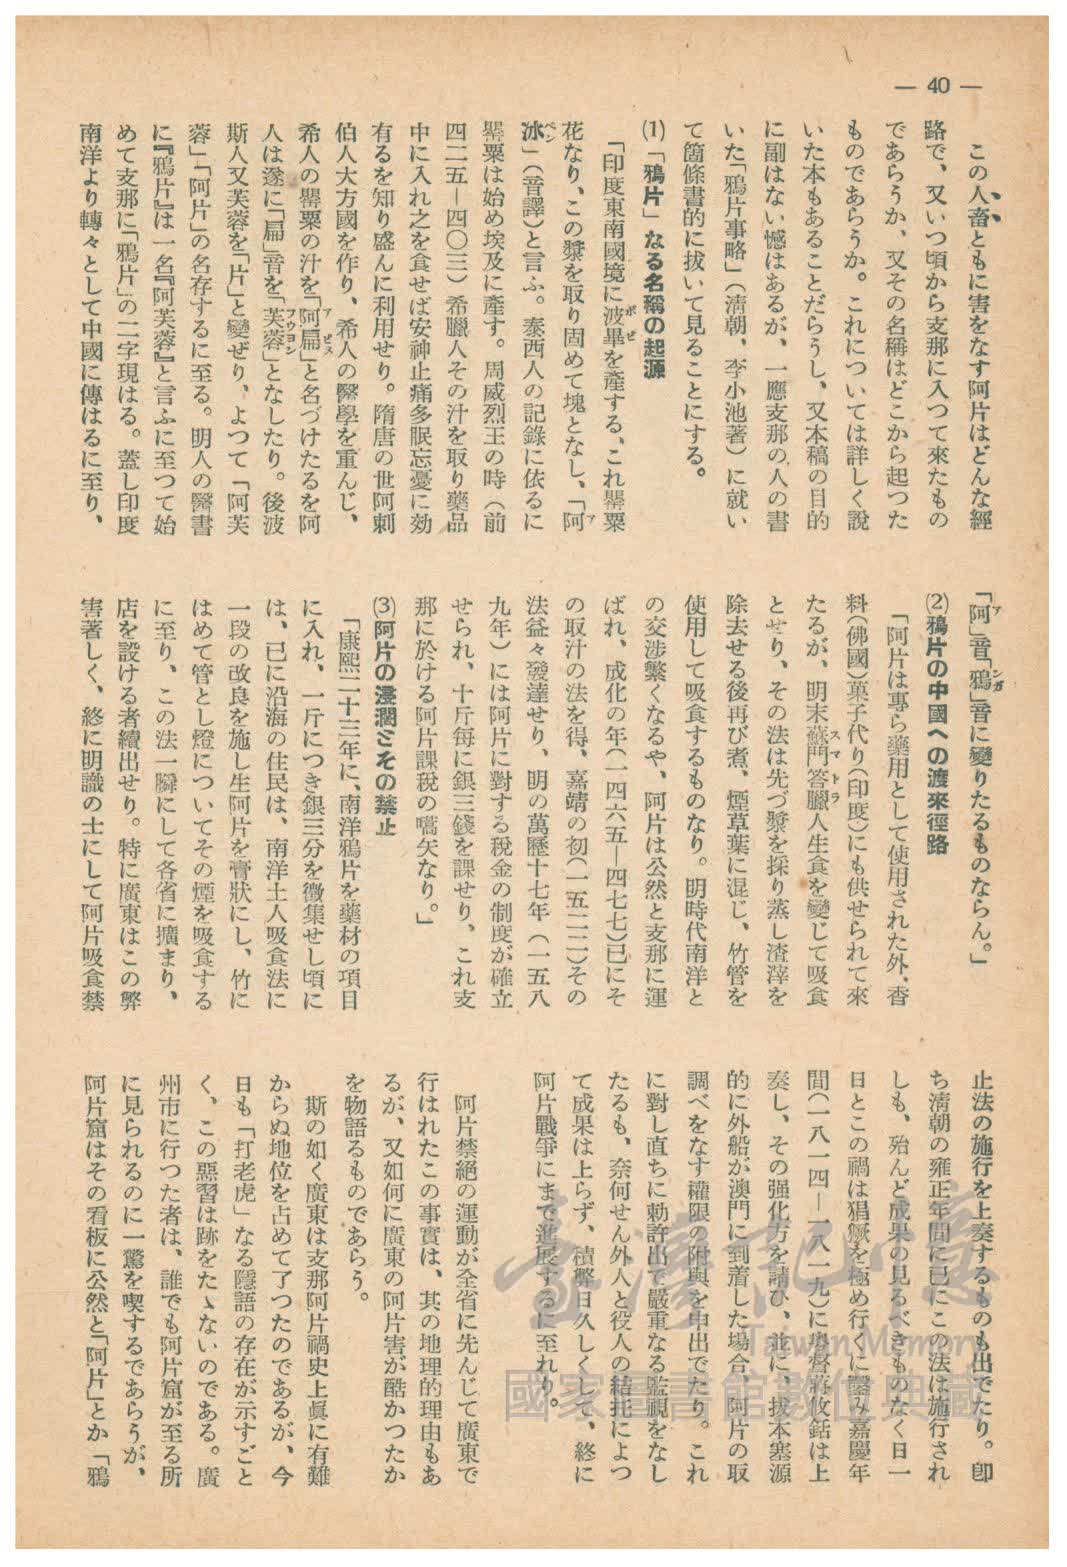 — 40 —
この人畜ともに害をなす阿片はどんな經
路で、又いつ頃から支那に入つて來たもの
であらうか、又その名稱はどこから起つた
ものであらうか。これについては詳しく說
いた本もあることだらうし、又本稿の目的
に副はない憾はあるが、一應支那の人の書
いた「鴉片事略」(淸朝、李小池著)に就い
て箇條書的に拔いて見ることにする。
(1)「鴉片」なる名稱の起源
「印度東南國境に波畢を產する、これ罌粟
花なり、この漿を取り固めて塊となし、「阿
冰」(音譯)と言ふ。泰西人の記錄に依るに
罌粟は始め埃及に產す。周威烈王の時(前
四二五―四〇三)希臘人その汁を取り藥品
中に入れ之を食せば安神止痛多眠忘憂に効
有るを知り盛んに利用せり。隋唐の世阿剌
伯人大方國を作り、希人の醫學を重んじ、
希人の罌粟の汁を「阿扁」と名づけたるを阿
人は遂に「扁」音を「芙蓉」となしたり。後波
斯人又芙蓉を「片」と變ぜり、よつて「阿芙
蓉」「阿片」の名存するに至る。明人の醫書
に『鴉片』は一名『阿芙蓉』と言ふに至つて始
めて支那に「鴉片」の二字現はる。蓋し印度
南洋より轉々として中國に傳はるに至り、
「阿」音「鴉」音に變りたるものならん。」
(2)鴉片の中國への渡來徑路
「阿片は專ら藥用として使用された外、香
料(佛國)菓子代り(印度)にも供せられて來
たるが、明末蘇門答臘人生食を變じて吸食
とせり、その法は先づ漿を採り蒸し渣滓を
除去せる後再び煮、煙草葉に混じ、竹管を
使用して吸食するものなり。明時代南洋と
の交涉繁くなるや、阿片は公然と支那に運
ばれ、成化の年(一四六五―四七七)已にそ
の取汁の法を得、嘉靖の初(一五二二)その
法益々發達せり、明の萬歷十七年(一五八
九年)には阿片に對する稅金の制度が確立
せられ、十斤每に銀三錢を課せり、これ支
那に於ける阿片課稅の嚆矢なり。」
(3)阿片の浸潤とその禁止
「康熙二十三年に、南洋鴉片を藥材の項目
に入れ、一斤につき銀三分を徵集せし頃に
は、已に沿海の住民は、南洋土人吸食法に
一段の改良を施し生阿片を膏狀にし、竹に
はめて管とし燈についてその煙を吸食する
に至り、この法一瞬にして各省に擴まり、
店を設ける者續出せり。特に廣東はこの弊
害著しく、終に明識の士にして阿片吸食禁
止法の施行を上奏するものも出でたり。卽
ち淸朝の雍正年間に已にこの法は施行され
しも、殆んど成果の見るべきものなく日一
日とこの禍は猖獗を極め行くに鑿み嘉慶年
間(一八一四―一八一九)に粤督蔣攸銛は上
奏し、その强化方を請ひ、並に、拔本塞源
的に外船が澳門に到着した場合、阿片の取
調べをなす權限の附與を申出でたり。これ
に對し直ちに勅許出で嚴重なる監視をなし
たるも、奈何せん外人と役人の結托によつ
て成果は上らず、積弊日久しくして、終に
阿片戰爭にまで進展するに至れり。
阿片禁絕の運動が全省に先んじて廣東で
行はれたこの事實は、其の地理的理由もあ
るが、又如何に廣東の阿片害が酷かつたか
を物語るものであらう。
斯の如く廣東は支那阿片禍史上眞に有難
からぬ地位を占めて了つたのであるが、今
日も「打老虎」なる隱語の存在が示すごと
く、この惡習は跡をたゝないのである。廣
州市に行つた者は、誰でも阿片窟が至る所
に見られるのに一驚を喫するであらうが、
阿片窟はその看板に公然と「阿片」とか「鴉
臺灣記憶
Taiwan Memory
國家圖書館數位典藏